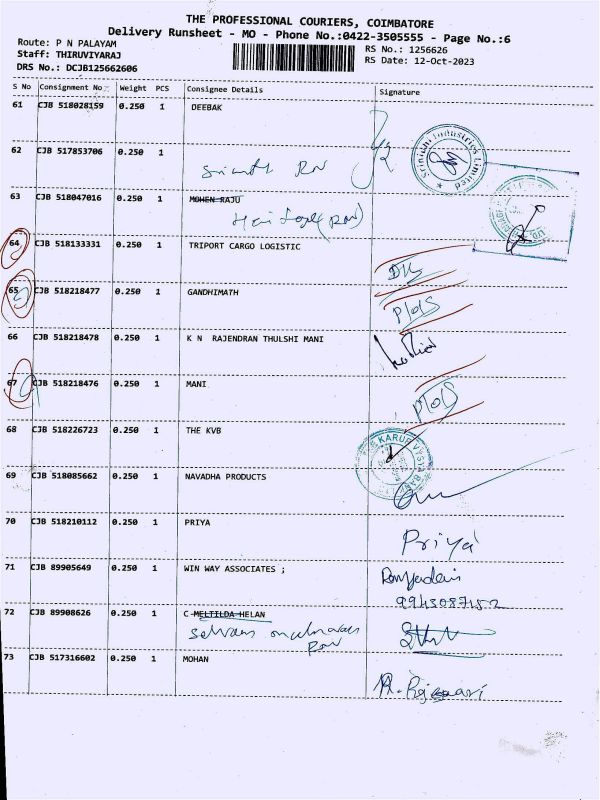 THE PROFESSIONAL COURIERS, COIMBATORE
Delivery Runsheet - MO - Phone No.:0422-3505555 - Page No.:6
Route: P N PALAYAM
Staff: THIRUVIYARAJ
DRS No.: DCJB125662606
RS No.: 1256626
RS Date: 12-Oct-2023
S No Consignment No. Weight PCS Consignee Details Signature
61 CJB 518028159 0.250 1 DEEBAK
62 CJB 517853706 0.250 1
Srinidhi Industries Limited
63 CJB 518047016 0.250 1 MOHEN RAJU
64 CJB 518133331 0.250 1 TRIPORT CARGO LOGISTIC
65 CJB 518218477 0.250 1 GANDHIMATH
66 CJB 518218478 0.250 1 K N RAJENDRAN THULSHI MANI
67 CJB 518218476 0.250 1 MANI
68 CJB 518226723 0.250 1 THE KVB
KARUR VYSYA BANK
69 CJB 518085662 0.250 1 NAVADHA PRODUCTS
70 CJB 518210112 0.250 1 PRIYA
Priya
71 CJB 89905649 0.250 1 WIN WAY ASSOCIATES ;
72 CJB 89908626 0.250 1 C MELTILDA HELAN
73 CJB 517316602 0.250 1 MOHAN